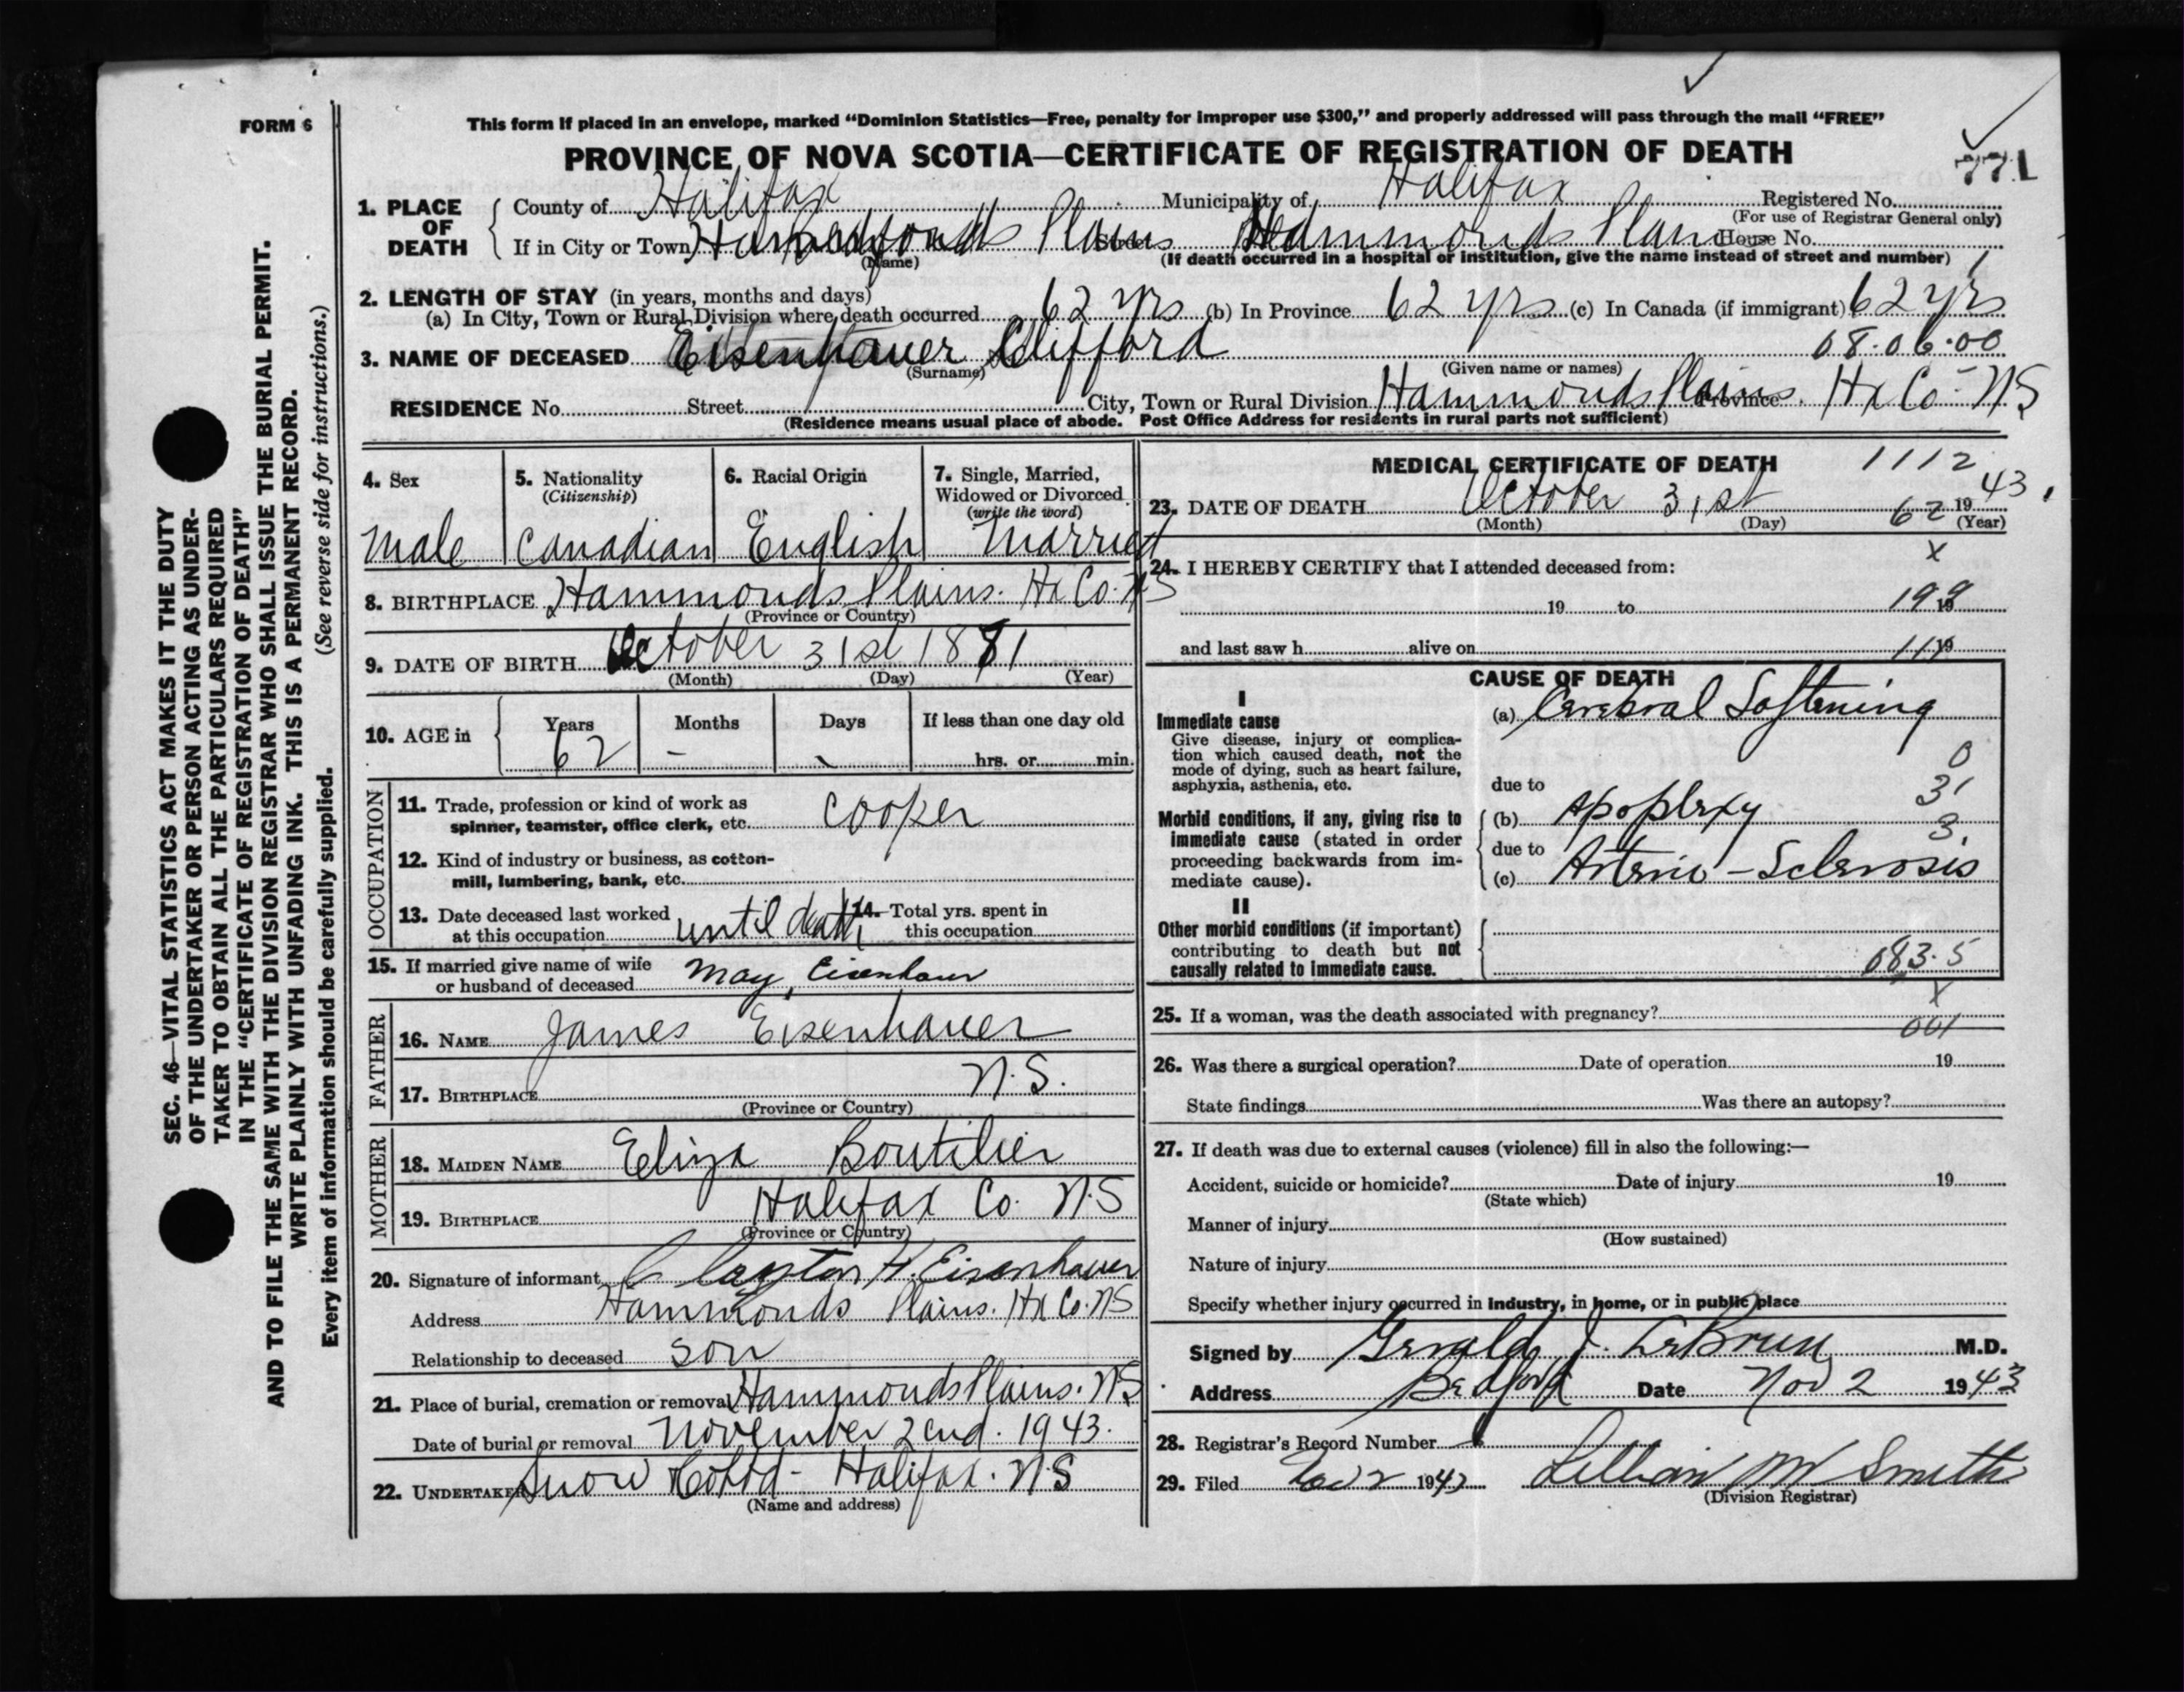 FORM 6
This form if placed in an envelope, marked “Dominion Statistics—Free, penalty for improper use $300,” and properly addressed will pass through the mail “FREE”
PROVINCE OF NOVA SCOTIA—CERTIFICATE OF REGISTRATION OF DEATH
771
1. PLACE OF DEATH
County of Halifax Municipality of Halifax Registered No.
(For use of Registrar General only)
If in City or Town Hammonds Plains Street Hammonds Plains House No.
(Name) (If death occurred in a hospital or institution, give the name instead of street and number)
2. LENGTH OF STAY (in years, months and days)
(a) In City, Town or Rural Division where death occurred 62 yrs (b) In Province 62 yrs (c) In Canada (if immigrant) 62 yrs
08.06.00
3. NAME OF DECEASED Eisenhauer Clifford
(Surname) (Given name or names)
RESIDENCE No. Street City, Town or Rural Division Hammonds Plains Province Hx Co - NS
(Residence means usual place of abode. Post Office Address for residents in rural parts not sufficient)
4. Sex
Male
5. Nationality
(Citizenship)
Canadian
6. Racial Origin
English
7. Single, Married,
Widowed or Divorced
(write the word)
Married
8. BIRTHPLACE Hammonds Plains. Hx Co. NS
(Province or Country)
9. DATE OF BIRTH October 31st 1881
(Month) (Day) (Year)
10. AGE in Years Months Days If less than one day old
62 - - hrs. or min.
OCCUPATION
11. Trade, profession or kind of work as
spinner, teamster, office clerk, etc. Cooper
12. Kind of industry or business, as cotton-
mill, lumbering, bank, etc.
13. Date deceased last worked
at this occupation until death
14. Total yrs. spent in
this occupation
15. If married give name of wife
or husband of deceased May Eisenhaur
FATHER
16. NAME James Eisenhauer
17. BIRTHPLACE N.S.
(Province or Country)
MOTHER
18. MAIDEN NAME Eliza Boutilier
19. BIRTHPLACE Halifax Co. N.S
(Province or Country)
20. Signature of informant Clayton H. Eisenhauer
Address Hammonds Plains. Hx Co. NS
Relationship to deceased son
21. Place of burial, cremation or removal Hammonds Plains. NS
Date of burial or removal November 2end. 1943.
22. UNDERTAKER Snow Co Ltd - Halifax. N.S
(Name and address)
MEDICAL CERTIFICATE OF DEATH 1112
23. DATE OF DEATH October 31st 62 1943
(Month) (Day) (Year)
x
24. I HEREBY CERTIFY that I attended deceased from:
19 to 19
and last saw h alive on 19
CAUSE OF DEATH
I
Immediate cause
Give disease, injury or complica-
tion which caused death, not the
mode of dying, such as heart failure,
asphyxia, asthenia, etc.
(a) Cerebral Softening
0
due to 3
Morbid conditions, if any, giving rise to
immediate cause (stated in order
proceeding backwards from im-
mediate cause).
(b) Apoplexy
3
due to
(c) Arterio-Sclerosis
II
Other morbid conditions (if important)
contributing to death but not
causally related to immediate cause.
083.5
x
25. If a woman, was the death associated with pregnancy?
001
26. Was there a surgical operation? Date of operation 19
State findings Was there an autopsy?
27. If death was due to external causes (violence) fill in also the following:—
Accident, suicide or homicide? Date of injury 19
(State which)
Manner of injury
(How sustained)
Nature of injury
Specify whether injury occurred in industry, in home, or in public place
Signed by Gerald J. LeBrun M.D.
Address Bedford Date Nov 2 1943
28. Registrar's Record Number
29. Filed Nov 2 1943 Lillian M Smith
(Division Registrar)
SEC. 46—VITAL STATISTICS ACT MAKES IT THE DUTY
OF THE UNDERTAKER OR PERSON ACTING AS UNDER-
TAKER TO OBTAIN ALL THE PARTICULARS REQUIRED
IN THE “CERTIFICATE OF REGISTRATION OF DEATH”
AND TO FILE THE SAME WITH THE DIVISION REGISTRAR WHO SHALL ISSUE THE BURIAL PERMIT.
WRITE PLAINLY WITH UNFADING INK. THIS IS A PERMANENT RECORD.
Every item of information should be carefully supplied. (See reverse side for instructions.)